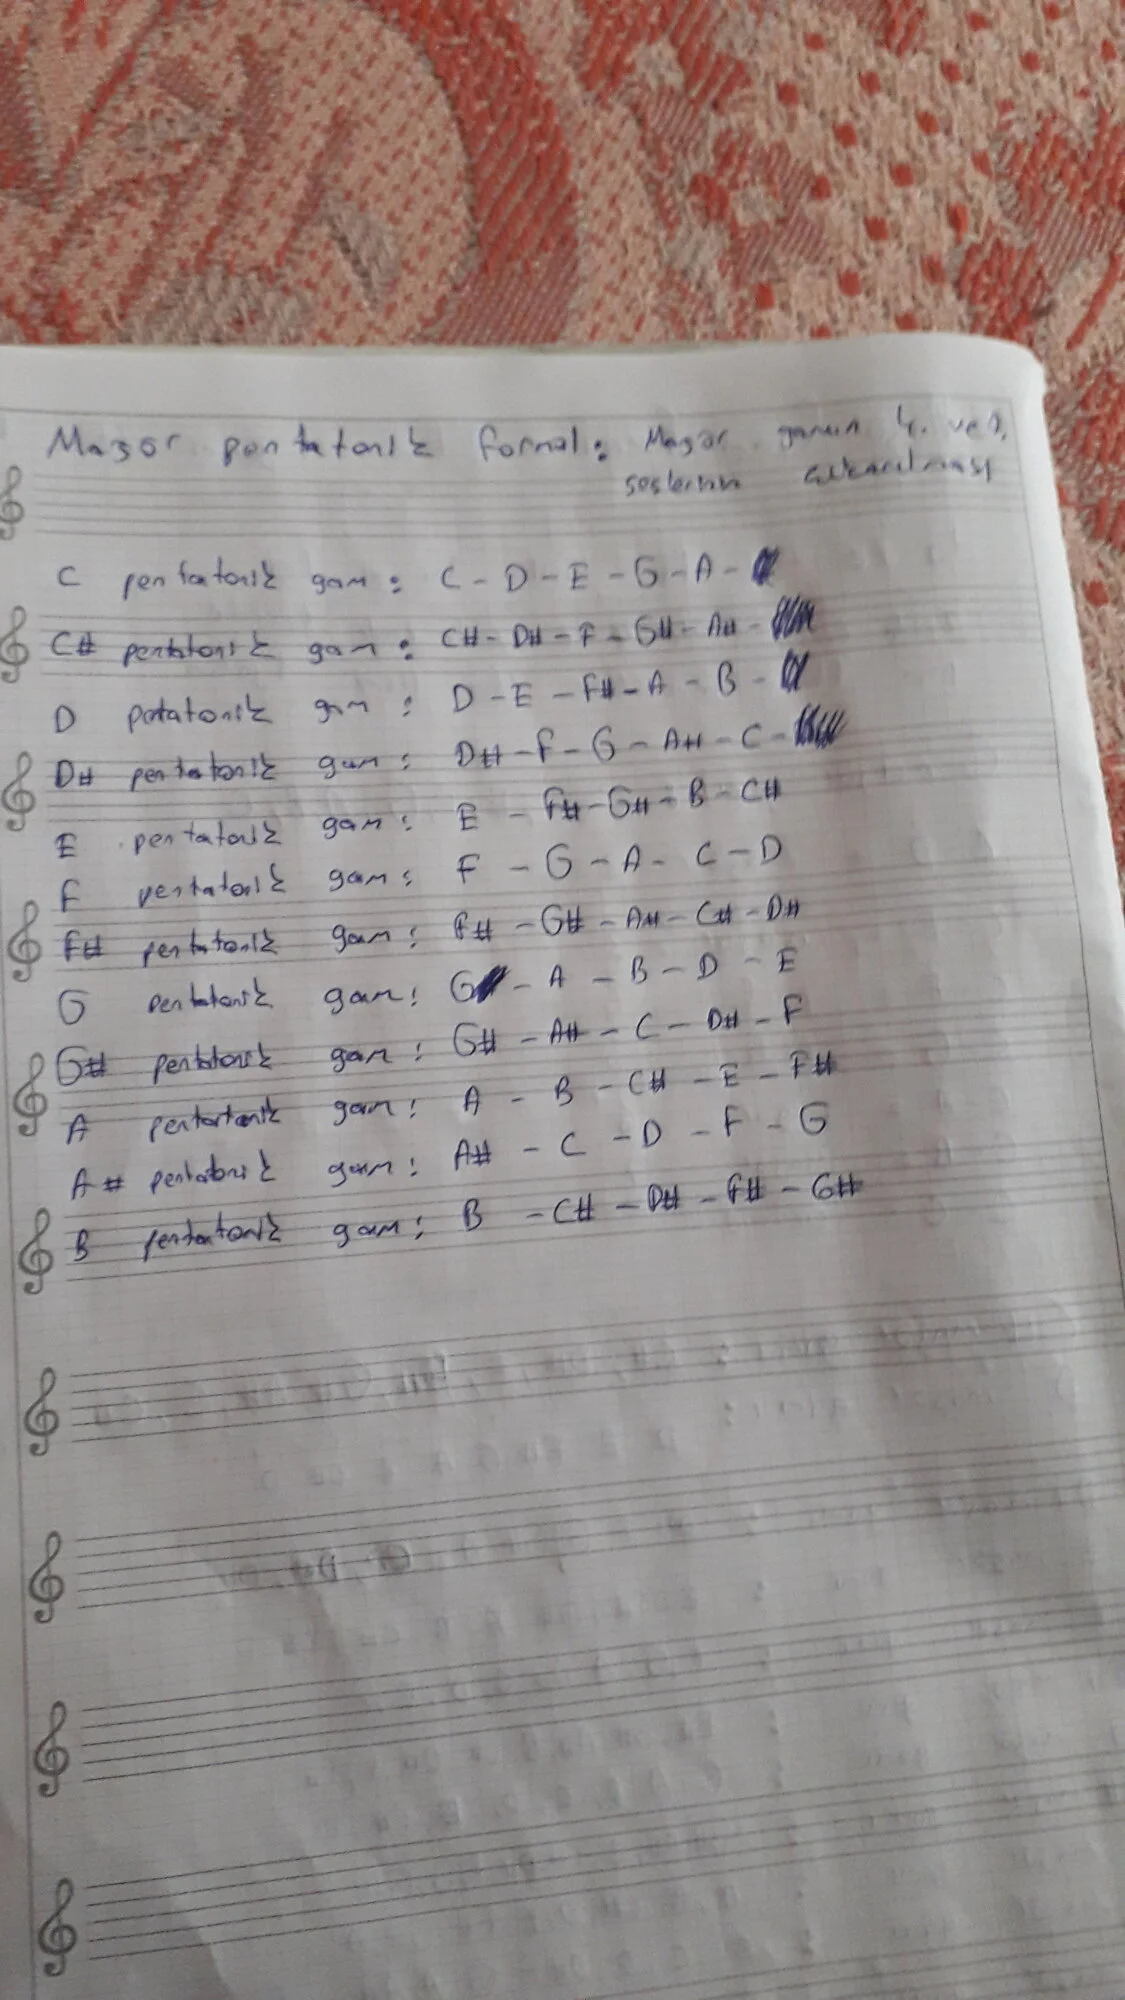 Majör pentatonik formül: Majör gamın 4. ve 7.
seslerinin çıkarılması
C pentatonik gam: C - D - E - G - A -
C# pentatonik gam: C# - D# - F - G# - A# -
D petatonik gam: D - E - F# - A - B -
D# pentatonik gam: D# - F - G - A# - C -
E pentatonik gam: E - F# - G# - B - C#
F pentatonik gam: F - G - A - C - D
F# pentatonik gam: F# - G# - A# - C# - D#
G pentatonik gam: G - A - B - D - E
G# pentatonik gam: G# - A# - C - D# - F
A pentatonik gam: A - B - C# - E - F#
A# pentatonik gam: A# - C - D - F - G
B pentatonik gam: B - C# - D# - F# - G#